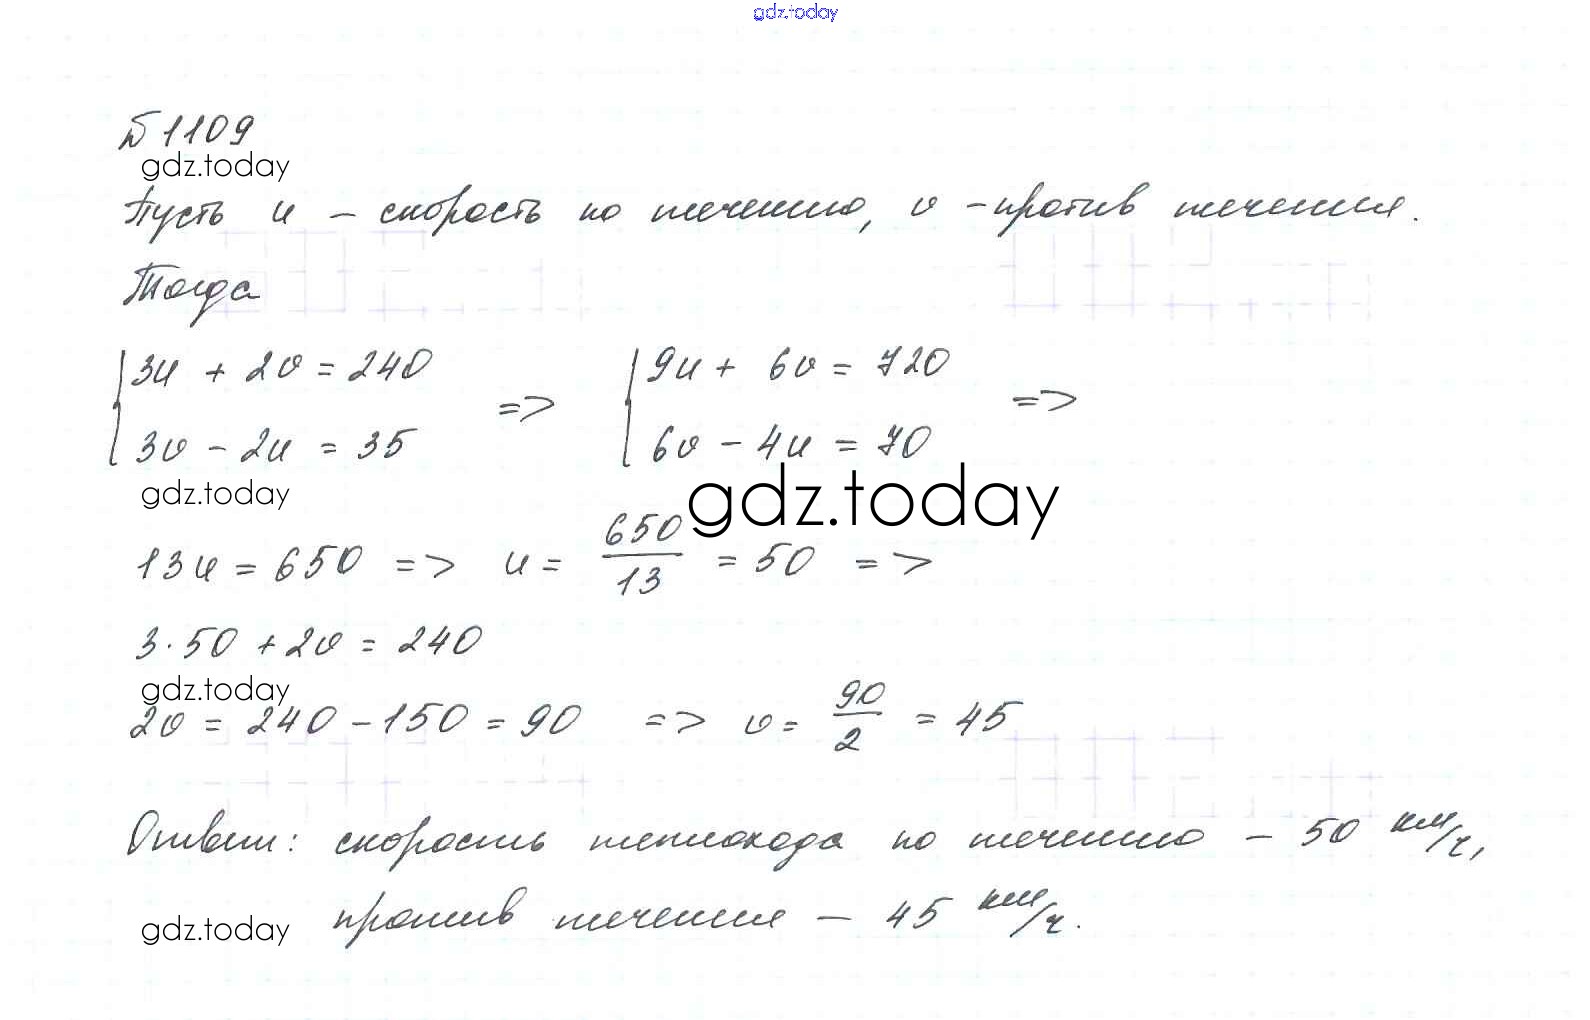 gdz.today
№1109
gdz.today
Пусть u – скорость по течению, v – против течения.
Тогда
{ 3u + 2v = 240 => { 9u + 6v = 720 =>
3v – 2u = 35 6v – 4u = 70
gdz.today
gdz.today
13u = 650 => u = 650/13 = 50 =>
3·50 + 2v = 240
gdz.today
2v = 240 – 150 = 90 => v = 90/2 = 45
Ответ: скорость теплохода по течению – 50 км/ч,
gdz.today
против течения – 45 км/ч.